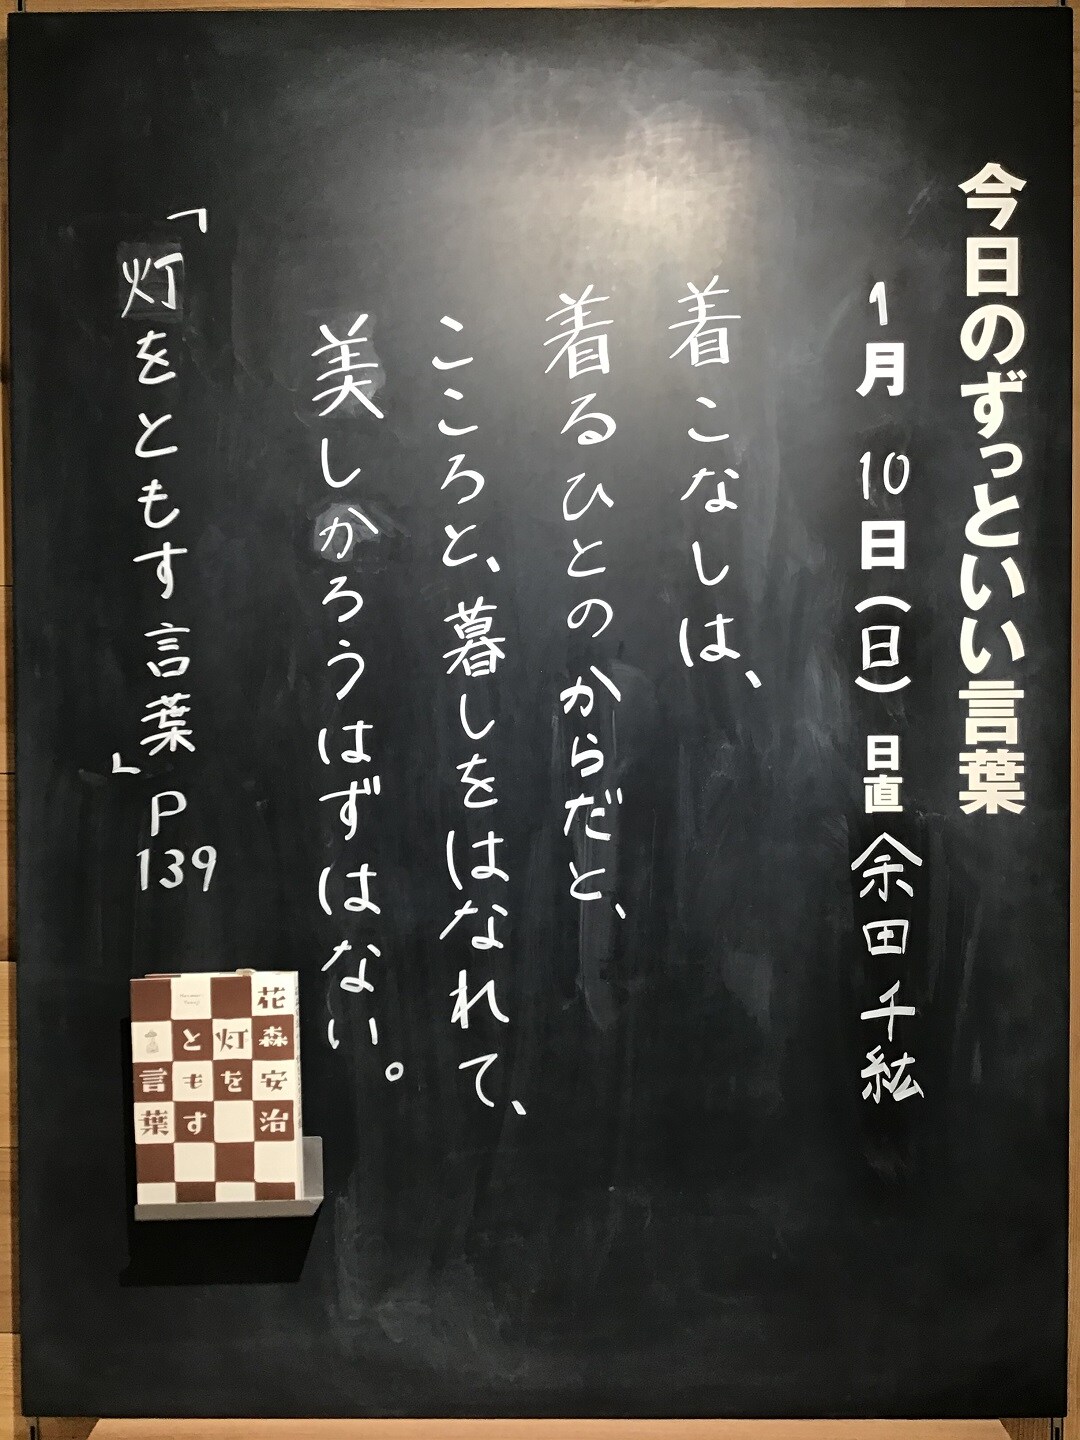 今日のずっといい言葉
1月10日(日) 日直 余田千紘
着こなしは、
着るひとのからだと、
こころと、暮しをはなれて、
美しかろうはずはない。
「灯をともす言葉」P139
花森安治
灯を
ともす
言葉